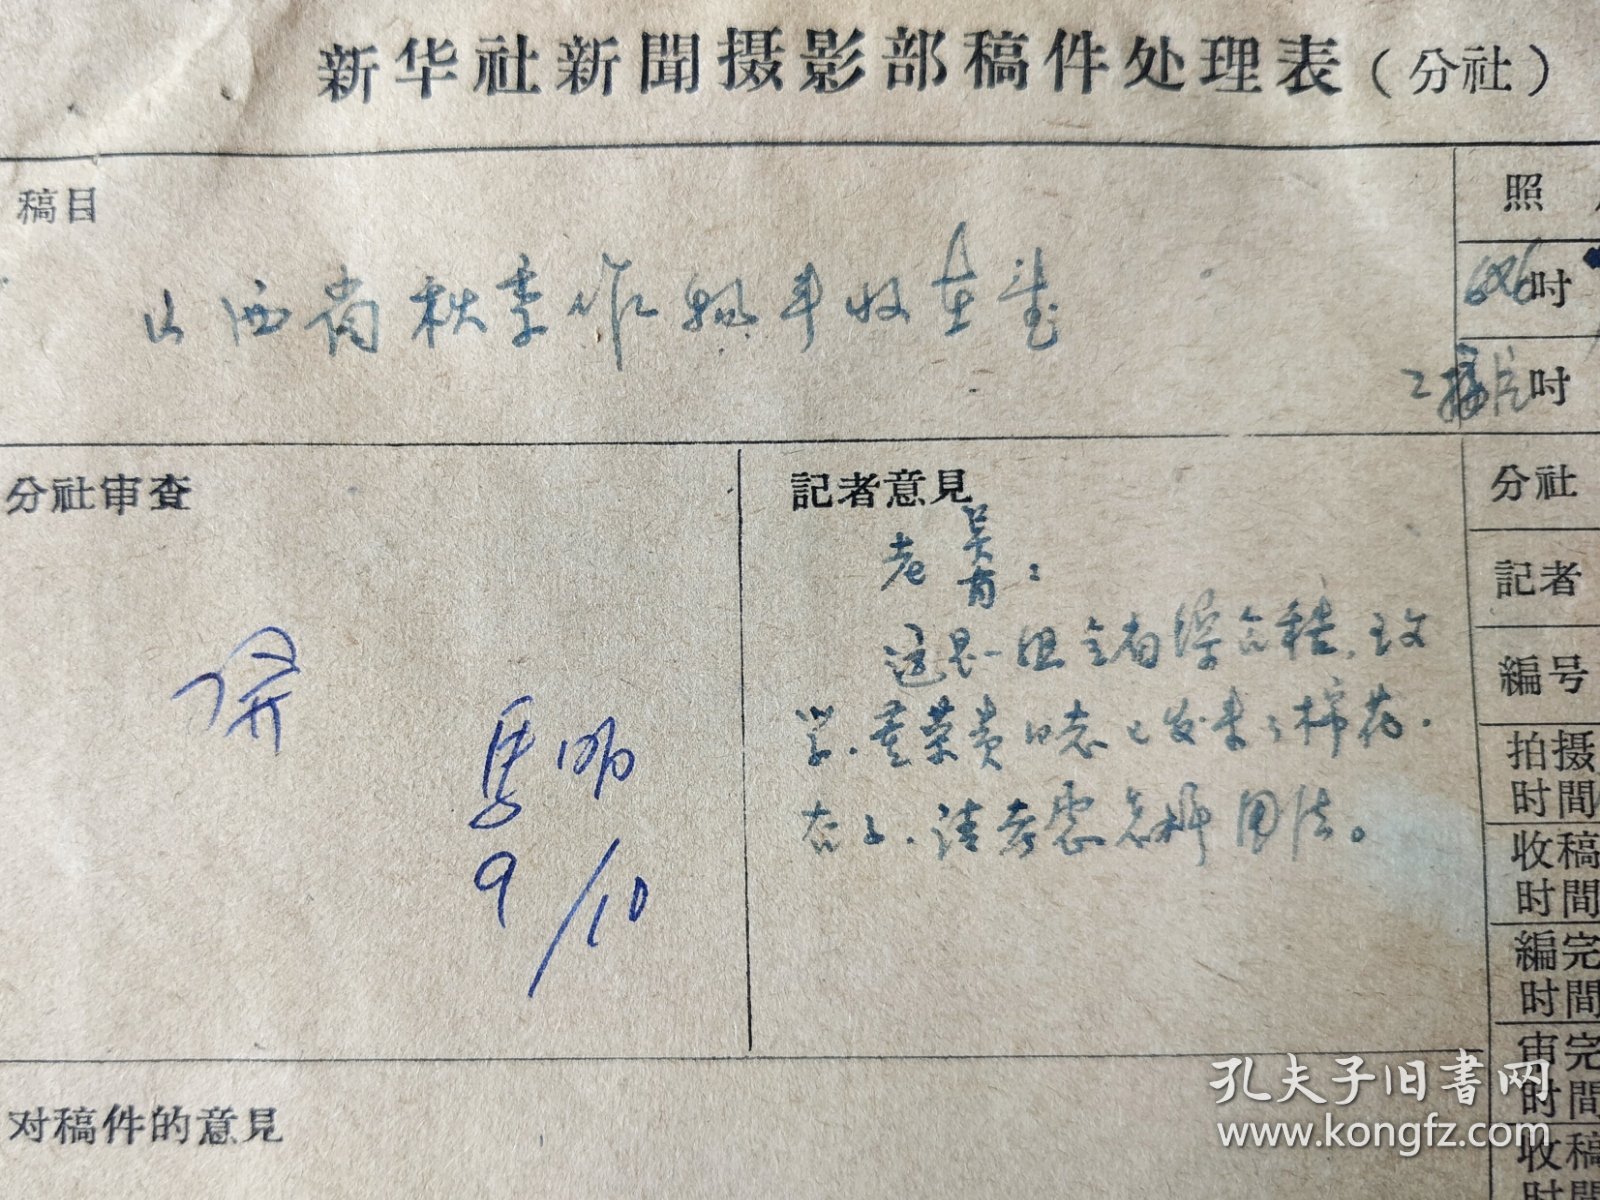 新华社新聞摄影部稿件处理表（分社）
稿目
山西省秋季作物丰收在望
照
6X6吋
2接片吋
分社审查
併
馬明
9/10
記者意見
老吴肖：
这是一组全省综合稿，
黄荣贵同志已发来了棉花、
谷子、请考虑怎样用法。
分社
記者
編号
拍摄
时間
收稿
时間
編完
时間
审完
时間
收稿
时間
对稿件的意見
孔夫子旧書网
www.kongfz.com